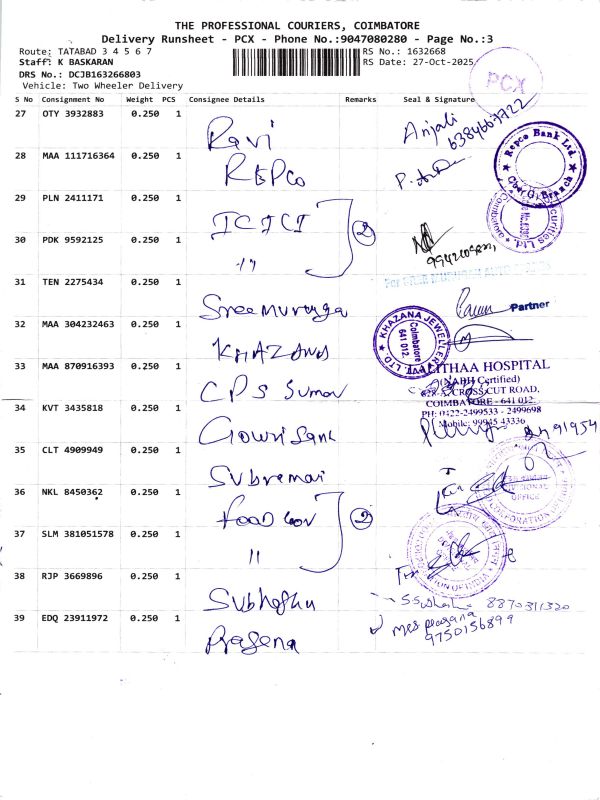 THE PROFESSIONAL COURIERS, COIMBATORE
Delivery Runsheet - PCX - Phone No.:9047080280 - Page No.:3
Route: TATABAD 3 4 5 6 7
RS No.: 1632668
Staff: K BASKARAN
RS Date: 27-Oct-2025
DRS No.: DCJB163266803
Vehicle: Two Wheeler Delivery
PCX
S No Consignment No Weight PCS Consignee Details Remarks Seal & Signature
27 OTY 3932883 0.250 1 Ravi Anjali
6384667722
28 MAA 111716364 0.250 1 REPCO
Repco Bank Ltd.
Branch
29 PLN 2411171 0.250 1 ICICI
2
30 PDK 9592125 0.250 1 "
31 TEN 2275434 0.250 1 Sree Muruga
Partner
32 MAA 304232463 0.250 1 KHAZANA
KHAZANA JEWELLERY PVT. LTD.
Coimbatore
641 012.
33 MAA 870916393 0.250 1 CPS Suman
HOSPITAL
(NABH Certified)
CROSSCUT ROAD,
COIMBATORE - 641 012.
PH: 0422-2499533 - 2499698
Mobile: 99945 43336
34 KVT 3435818 0.250 1 Gowri Sank
35 CLT 4909949 0.250 1 Subremai
36 NKL 8450362 0.250 1 Food Cor
2
OFFICE
37 SLM 381051578 0.250 1 "
38 RJP 3669896 0.250 1 Subhashu
8870311320
39 EDQ 23911972 0.250 1 Prasena
9750156899